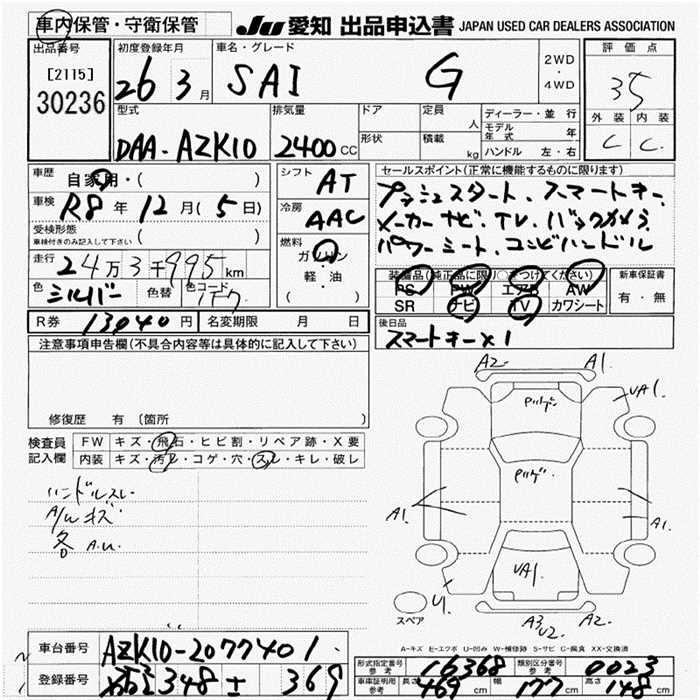 車内保管・守衛保管
JU 愛知 出品申込書 JAPAN USED CAR DEALERS ASSOCIATION
出品番号
[2115]
30236
初度登録年月
26 3月
車名・グレード
SAI G
2WD
・
4WD
評価点
35
外装 内装
C C
型式
DAA-AZK10
排気量
2400cc
ドア
形状
定員
人
積載
kg
ディーラー・並行
モデル年式 年
ハンドル 左・右
車歴
自家用・( )
車検
R8年12月(5日)
受検形態
車検付きのみ記入して下さい ( )
走行
24万3千995km
色
シルバー
色替
色コード
1F7
シフト
AT
冷房
AAC
燃料
ガソリン
・
軽・油
( )
セールスポイント(正常に機能するものに限ります)
プッシュスタート、スマートキー、
メーカーナビ、TV、バックカメラ
パワーシート、コンビハンドル
装備品(純正品に限り○をつけてください)
PS PW エアB AW
SR ナビ TV カワシート
新車保証書
有・無
R券 13040円 名変期限 月 日
後日品
スマートキー×1
注意事項申告欄(不具合内容等は具体的に記入して下さい)
修復歴 有 〔箇所 〕
検査員
記入欄
FW キズ・飛石・ヒビ割・リペア跡・X要
内装 キズ・汚レ・コゲ・穴・スレ・キレ・破レ
ハンドルスレ
A/Wキズ
各A.U.
A2 A1
UA1
A1
A1
UA1
U1
A3
U2
A2
スペア
A-キズ E-エクボ U-凹み W-補修跡 S-サビ C-腐食 XX-交換済
車台番号
AZK10-2077401
登録番号
348 369
形式指定番号
参考
16368
類別区分番号
参考
0023
車室証明用
参考
長さ 469cm 幅 177cm 高さ 148cm